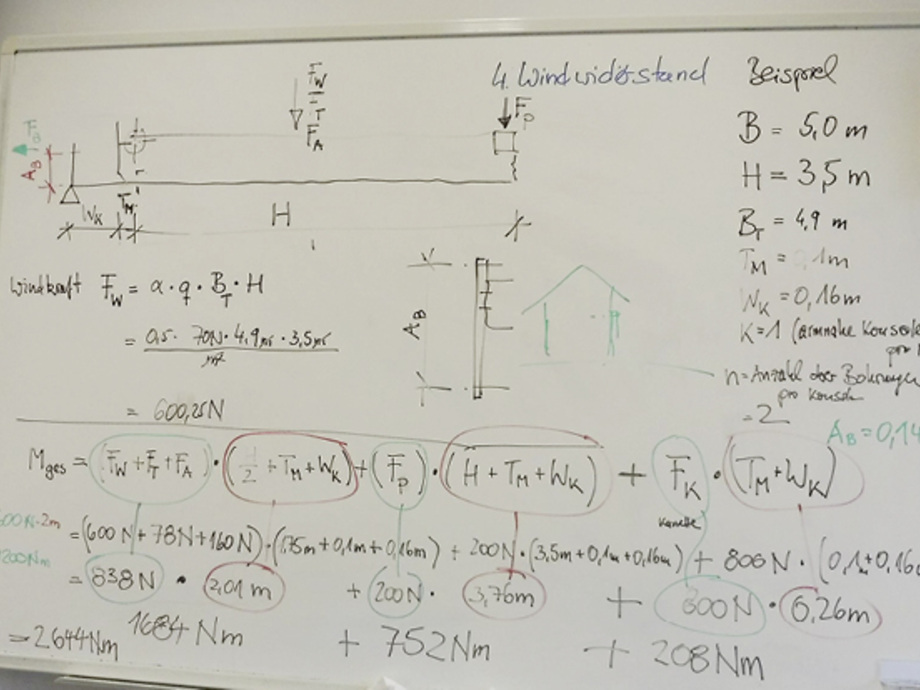 4. Windwiderstand
Beispiel
F_W
F_T
F_A
F_P
F_B
A_B
W_K
T_M
H
B = 5,0 m
H = 3,5 m
B_T = 4,9 m
T_M = 0,1m
W_K = 0,16m
K=1 (
n=Anzahl der Bohrungen
pro Konsole
= 2
A_B = 0,14
A_B
Windkraft F_W = α · q · B_T · H
= 0,5 · 70N · 4,9m · 3,5m
m²
= 600,25N
M_ges = (F_W + F_T + F_A) · (H/2 + T_M + W_K) + (F_P) · (H + T_M + W_K) + F_K · (T_M + W_K)
600N·2m
1200Nm
= (600N + 78N + 160N) · (1,75m + 0,1m + 0,16m) + 200N · (3,5m + 0,1m + 0,16m) + 800N · (0,1m + 0,16
= 838N · 2,01m + 200N · 3,76m + 800N · 0,26m
= 2644Nm 1684Nm + 752Nm + 208Nm